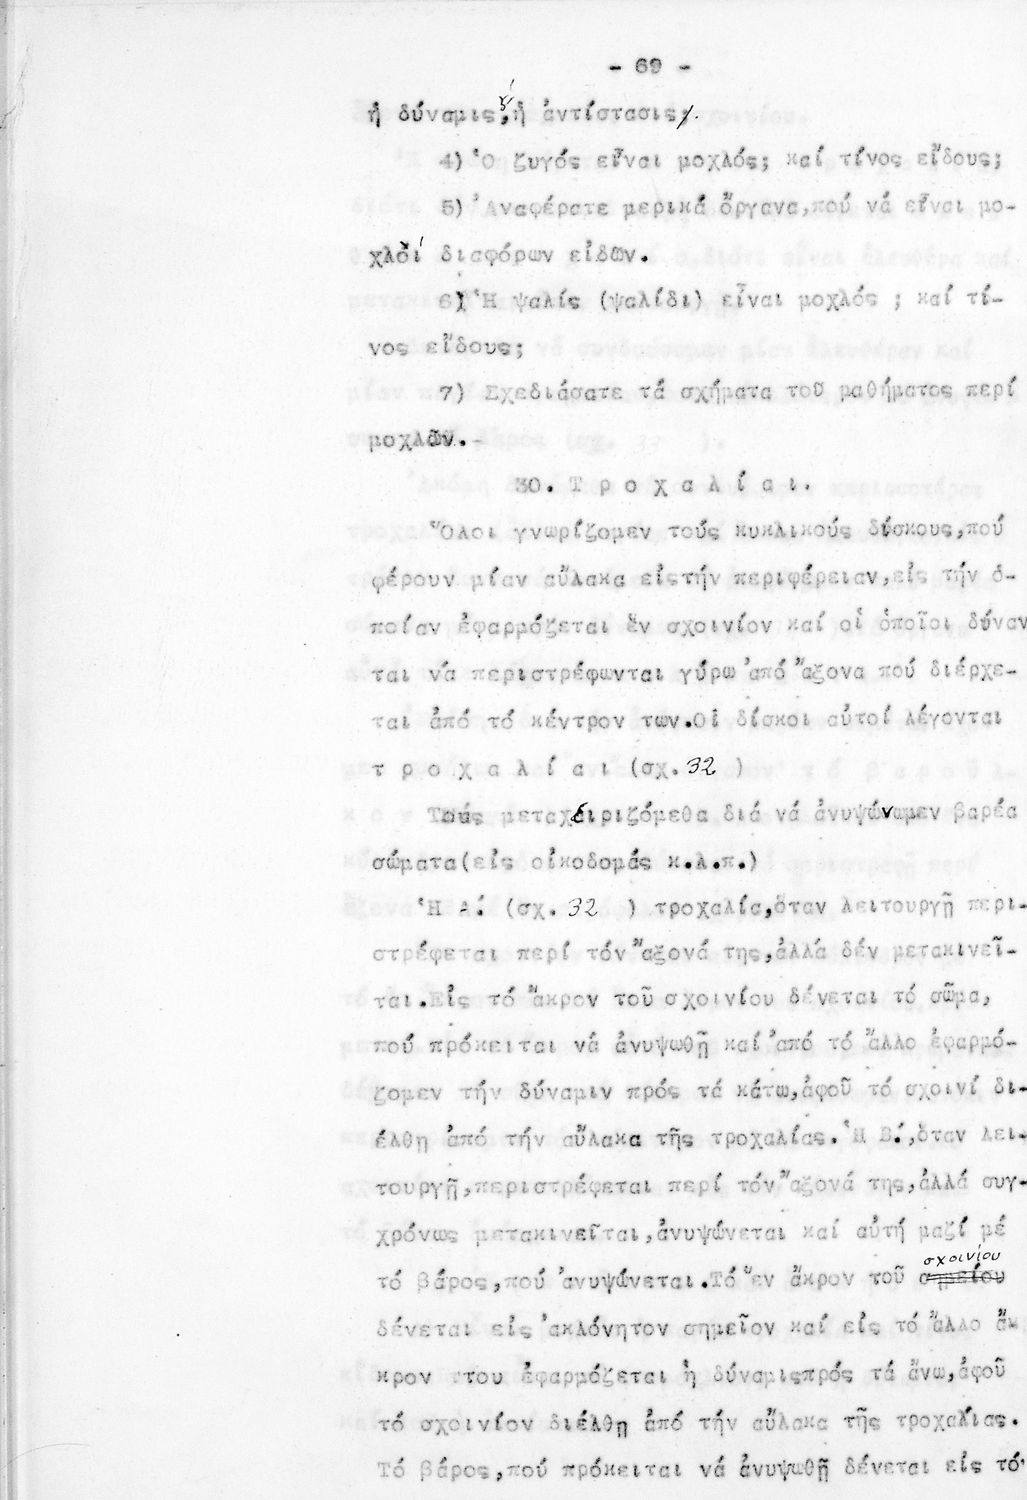 - 69 -
ἡ δύναμις, ἤ ἡ ἀντίστασις;
4) Ὁ ζυγός εἶναι μοχλός; καί τίνος εἴδους;
5) Ἀναφέρατε μερικά ὄργανα,πού νά εἶναι μο-
χλοί διαφόρων εἰδῶν.
6) Ἡ ψαλίς (ψαλίδι) εἶναι μοχλός ; καί τί-
νος εἴδους;
7) Σχεδιάσατε τά σχήματα τοῦ μαθήματος περί
μοχλῶν.-
30. Τ ρ ο χ α λ ί α ι .
Ὅλοι γνωρίζομεν τούς κυκλικούς δίσκους,πού
φέρουν μίαν αὔλακα εἰςτήν περιφέρειαν,εἰς τήν ὁ-
ποίαν ἐφαρμόζεται ἕν σχοινίον καί οἱ ὁποῖοι δύναν
ται νά περιστρέφωνται γύρω ἀπό ἄξονα πού διέρχε-
ται ἀπό τό κέντρον των.Οἱ δίσκοι αὐτοί λέγονται
τ ρ ο χ α λ ί α ι (σχ. 32 )
Τούς μεταχειριζόμεθα διά νά ἀνυψώνωμεν βαρέα
σώματα(εἰς οἰκοδομάς κ.λ.π.)
Ἡ Α΄ (σχ. 32 ) τροχαλία,ὅταν λειτουργῇ περι-
στρέφεται περί τόν ἄξονά της,ἀλλά δέν μετακινεῖ-
ται.Εἰς τό ἄκρον τοῦ σχοινίου δένεται τό σῶμα,
πού πρόκειται νά ἀνυψωθῇ καί ἀπό τό ἄλλο ἐφαρμό-
ζομεν τήν δύναμιν πρός τά κάτω,ἀφοῦ τό σχοινί δι-
έλθη ἀπό τήν αὔλακα τῆς τροχαλίας. Ἡ Β΄,ὅταν λει-
τουργῇ,περιστρέφεται περί τόν ἄξονά της,ἀλλά συγ-
χρόνως μετακινεῖται,ἀνυψώνεται καί αὐτή μαζί μέ
τό βάρος,πού ἀνυψώνεται.Τό ἕν ἄκρον τοῦ σημείου σχοινίου
δένεται εἰς ἀκλόνητον σημεῖον καί εἰς τό ἄλλο ἄκ
κρον του ἐφαρμόζεται ἡ δύναμιςπρός τά ἄνω,ἀφοῦ
τό σχοινίον διέλθη ἀπό τήν αὔλακα τῆς τροχαλίας.
Τό βάρος,πού πρόκειται νά ἀνυψωθῇ δένεται εἰς τό